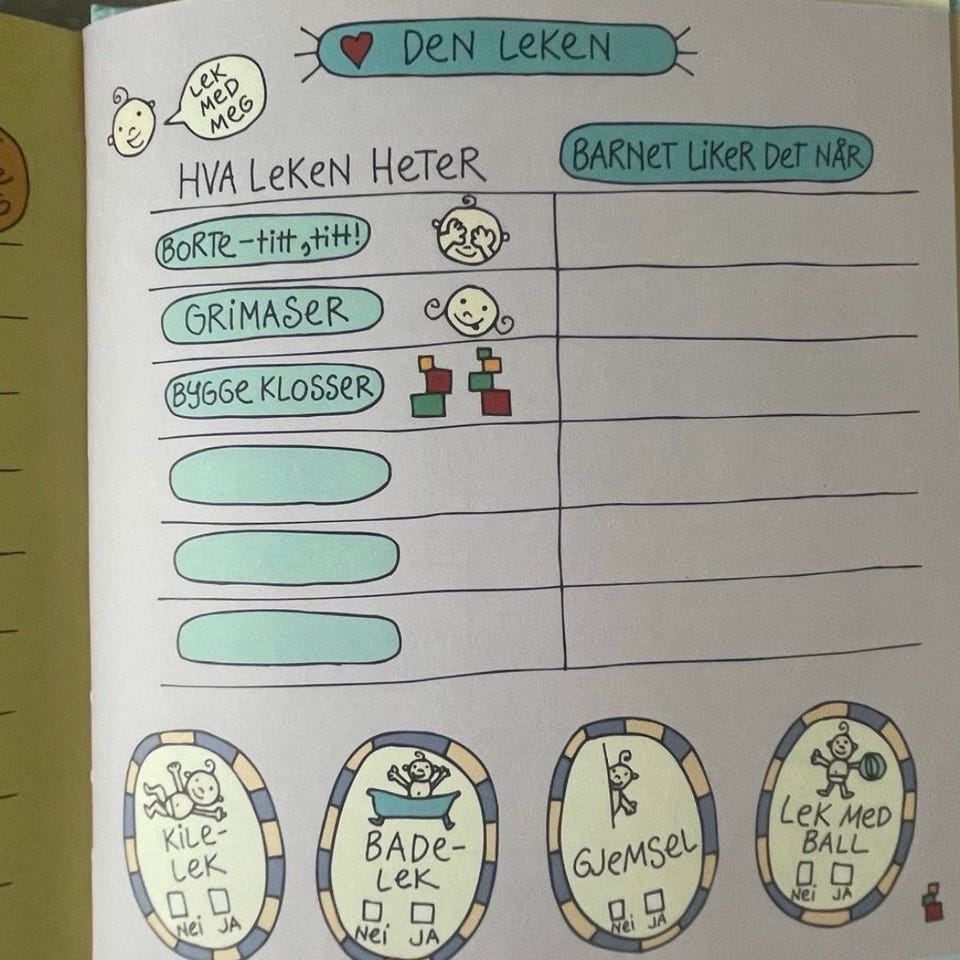 DeN LeKeN
LeK
MeD
MeG
HVA LeKeN HeTeR
BARNeT LiKeR DeT NÅR
BORTe-titt,titt!
GRiMASeR
BYGGe KLOSSeR
KiLe-
LeK
Nei JA
BADe-
LeK
Nei JA
GJeMSeL
Nei JA
LeK MeD
BALL
Nei JA